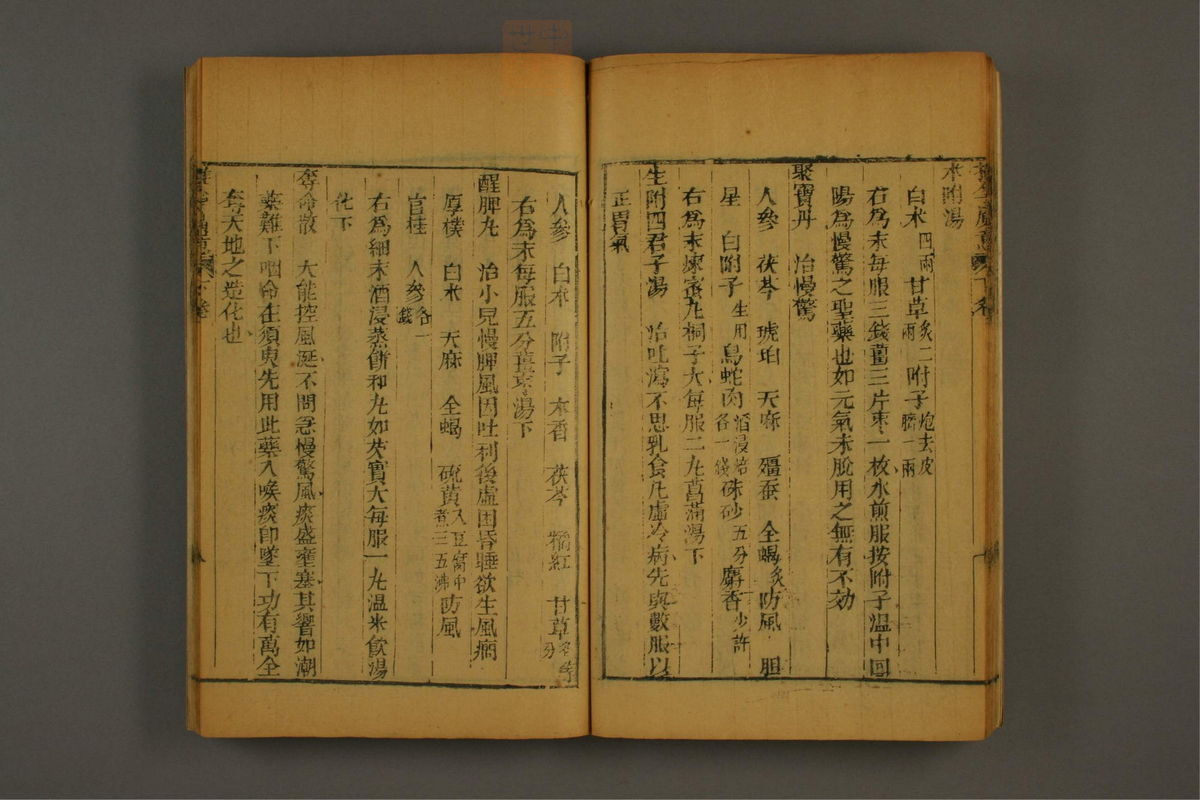 木附湯
白木四兩 甘草炙二兩 附子炮去皮臍一兩
右為末每服三錢薑三片棗一枚水煎服按附子溫中回
陽為慢驚之聖藥也如元氣未脫用之無有不効
聚寶丹 治慢驚
人參 茯苓 琥珀 天麻 殭蚕 全蝎炙 防風 胆
星 白附子生用 烏蛇肉酒浸焙各一錢 硃砂五分 麝香少許
右為末煉蜜丸桐子大每服二丸菖蒲湯下
生附四君子湯 治吐瀉不思乳食凡虛冷病先與數服以
正胃氣
人參 白木 附子 木香 茯苓 橘紅 甘草各等分
右為末每服五分薑棗湯下
醒脾丸 治小兒慢脾風因吐利後虛困昏睡欲生風癇
厚樸 白木 天麻 全蝎 硫黃入豆腐中煮三五沸 防風
官桂 人參各一錢
右為細末酒浸蒸餅和丸如芡實大每服一丸溫米飲湯
化下
奪命散 大能控風涎不問急慢驚風痰盛壅塞其響如潮
藥難下咽命在須臾先用此藥入喉痰即墜下功有萬全
奪天地之造化也